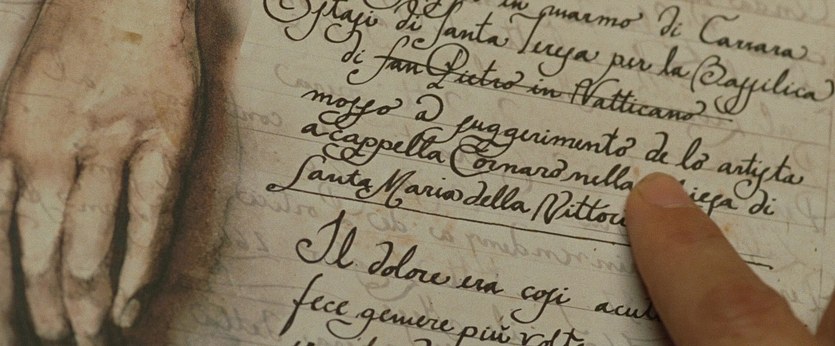 in marmo di Carrara
Estasi di Santa Teresa per la Bassilica
di San Pietro in Vatticano
mosso a suggerimento de lo artista
a cappella Cornaro nella di
Santa Maria della
Il dolore era cosi
fece gemere più volte